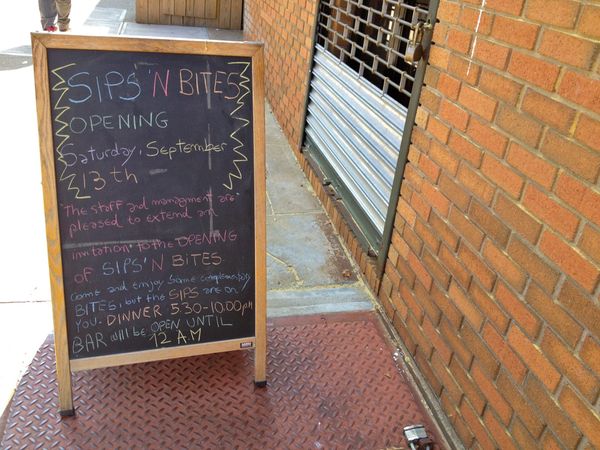 SIPS 'N BITES
OPENING
Saturday, September
13th
The staff and management are
pleased to extend an
invitation to the OPENING
OF SIPS 'N BITES.
Come and enjoy some complementary
BITES, but the SIPS are on
YOU. DINNER 5:30-10:00pm
BAR will be OPEN UNTIL
12 A.M